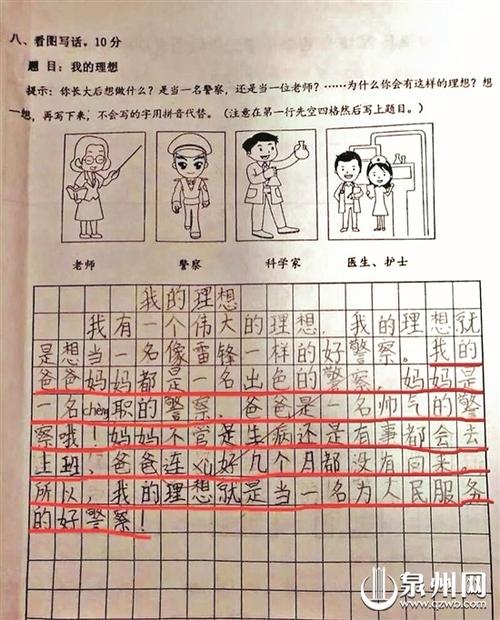 八、看图写话。10分
题目：我的理想
提示：你长大后想做什么？是当一名警察，还是当一位老师？……为什么你会有这样的理想？想
一想，再写下来，不会写的字用拼音代替。（注意在第一行先空四格然后写上题目。）
老师 警察 科学家 医生、护士
我的理想
我有一个伟大的理想，我的理想就
是想当一名像雷锋一样的好警察。我的
爸爸妈妈都是一名出色的警察，妈妈是
一名chèng职的警察，爸爸是一名帅气的警
察哦！妈妈不管是生病还是有事都会去
上班，爸爸连xù好几个月都没有回来。
所以，我的理想就是当一名为人民服务
的好警察！
泉州网
www.qzwb.com